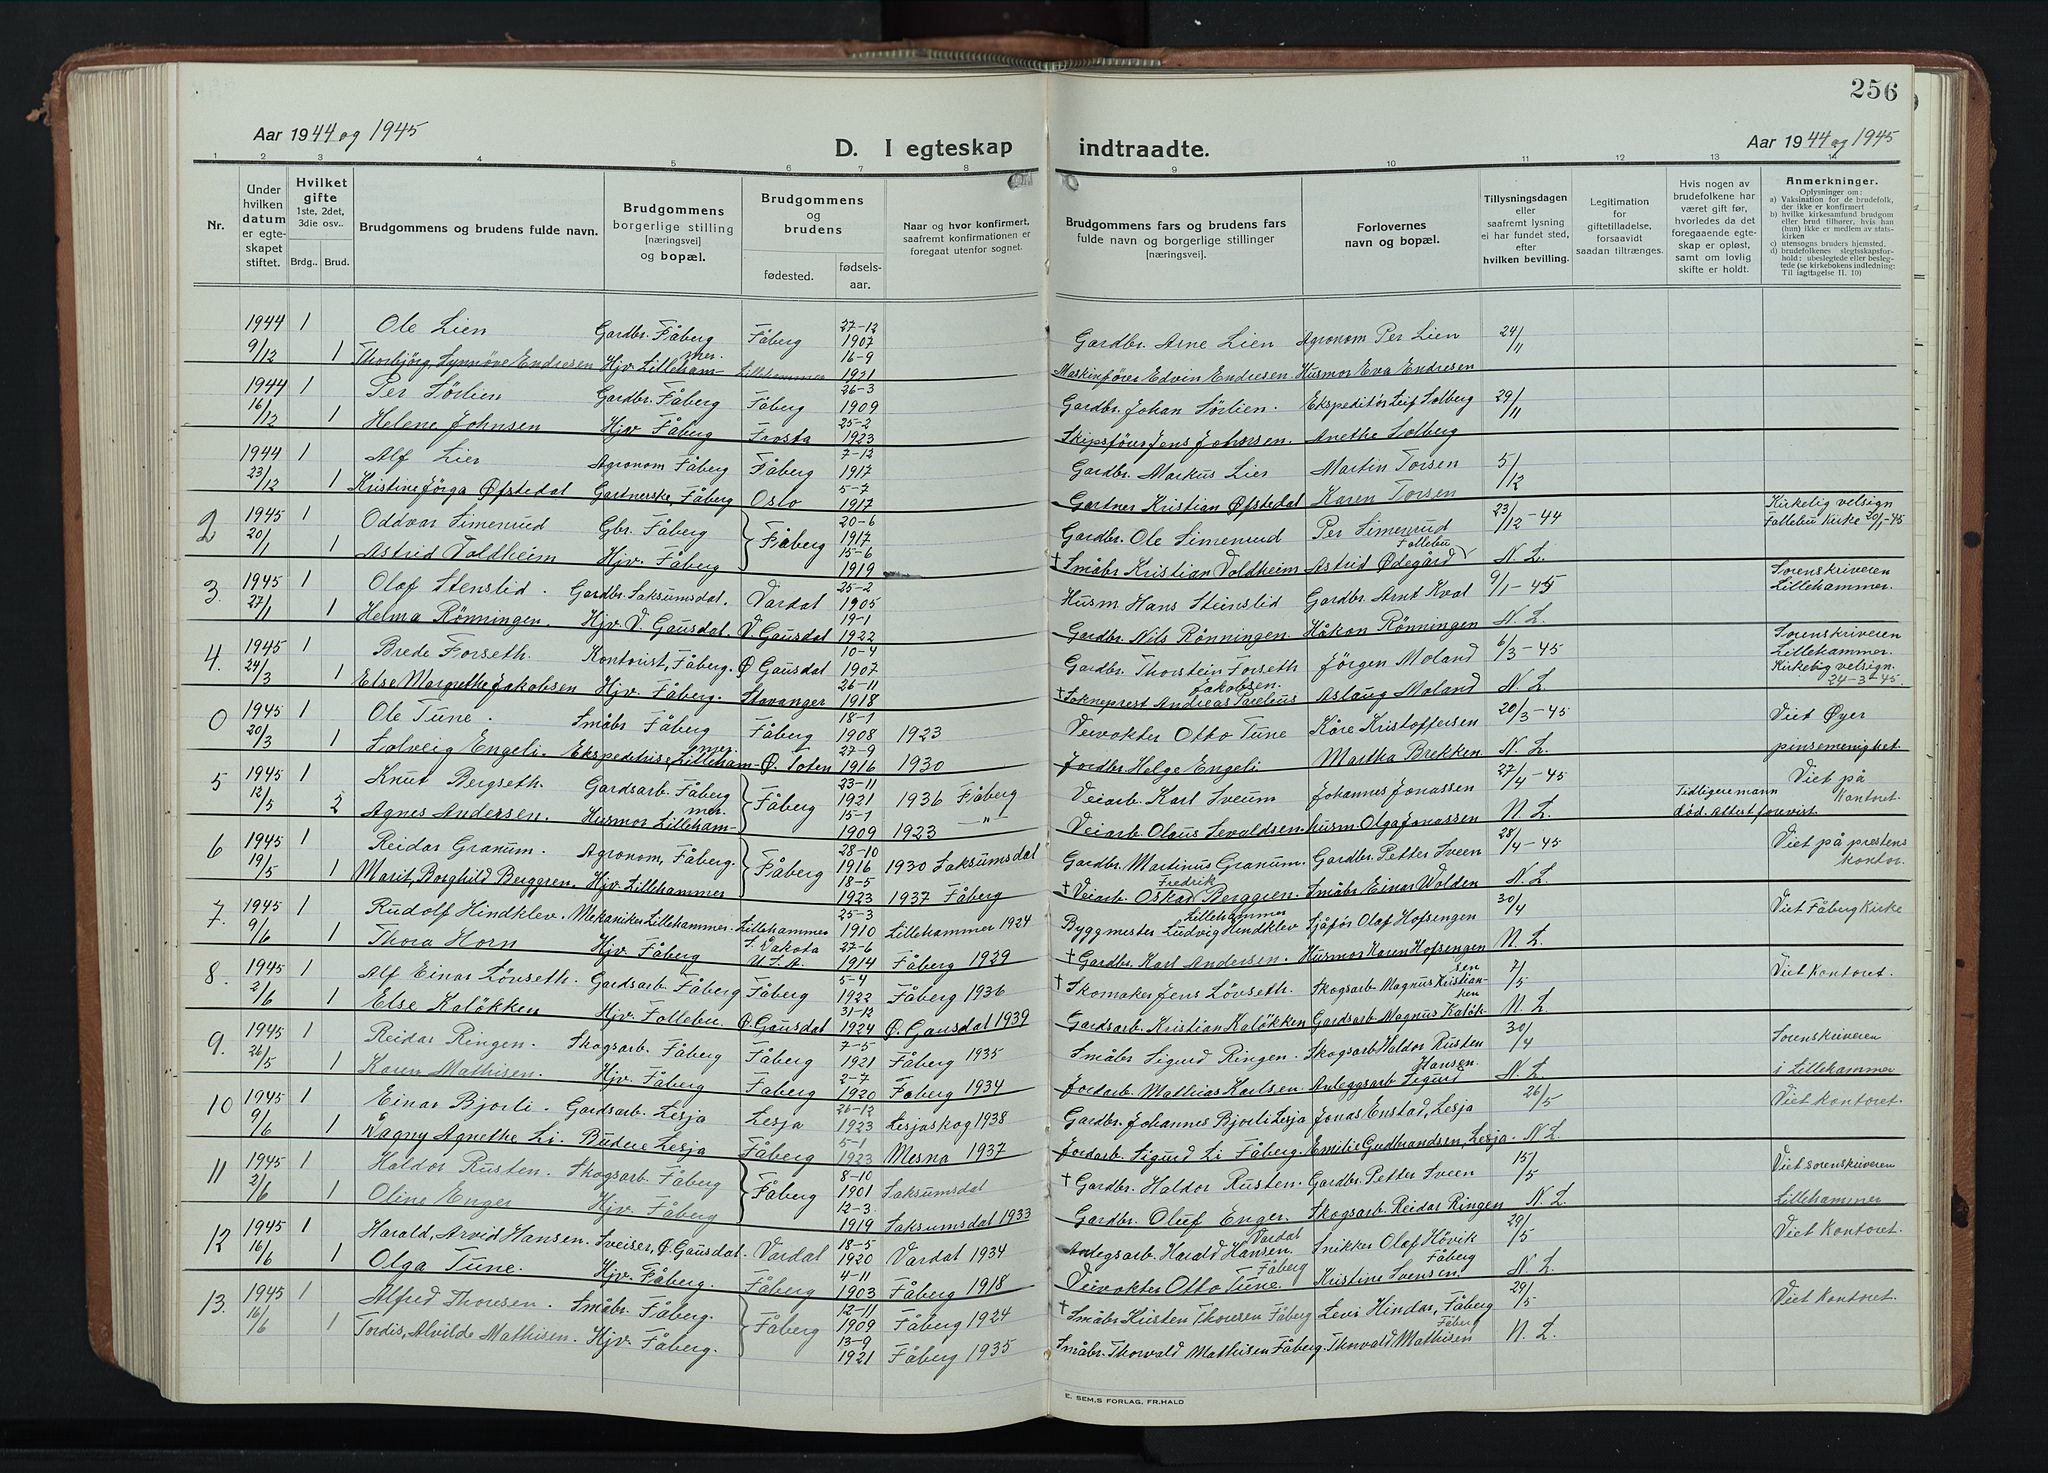 256
Aar 1944 og 1945
D. I egteskap indtraadte.
Aar 1944 og 1945
1 2 3 4 5 6 7 8 9 10 11 12 13 14
Nr.
Under hvilken datum er egteskapet stiftet.
Hvilket gifte 1ste, 2det, 3die osv..
Brdg.. Brud.
Brudgommens og brudens fulde navn.
Brudgommens borgerlige stilling [næringsvei] og bopæl.
Brudgommens og brudens
fødested. fødselsaar.
Naar og hvor konfirmert, saafremt konfirmationen er foregaat utenfor sognet.
Brudgommens fars og brudens fars fulde navn og borgerlige stillinger [næringsvei].
Forlovernes navn og bopæl.
Tillysningsdagen eller saafremt lysning ei har fundet sted, efter hvilken bevilling.
Legitimation for giftetilladelse, forsaavidt saadan tiltrænges.
Hvis nogen av brudefolkene har været gift før, hvorledes da det foregaaende egteskap er opløst, samt om lovlig skifte er holdt.
Anmerkninger.
Oplysninger om:
a) Vaksination for de brudefolk, der ikke er konfirmert
b) hvilke kirkesamfund brudgom eller brud tilhører, hvis han (hun) ikke er medlem av statskirken
c) utensogns bruders hjemsted.
d) brudefolkenes slegtsskapsforhold: ubeslegtede eller beslegtede (se kirkebokens indledning: Til iagttagelse II. 10)
1944 1 Ole Lien Gardbr. Fåberg Fåberg 27-12 1907 Gardbr. Arne Lien Agronom Per Lien 24/11
9/12 1 Thorbjörg, Synnöve Endresen Hjv. Lillehammer Lillehammer 16-9 1921 Maskinförer Edvin Endresen Husmor Eva Endresen
1944 1 Per Sörlien Gardbr. Fåberg Fåberg 26-3 1909 Gardbr. Johan Sörlien. Ekspeditör Leif Solberg 29/11
16/12 1 Helene Johnsen Hjv. Fåberg Frosta 25-2 1923 Skipsförer Jens Johnsen. Anethe Solberg
1944 1 Alf Lier Agronom Fåberg Fåberg 7-12 1917 Gardbr. Markus Lier Martin Torsen 5/12
23/12 1 Kristine Jörga Øfstedal Gartnerske, Fåberg Oslo 5-7 1917 Gartner Kristian Øfstedal Karen Torsen
2 1945 1 Oddvar Simenrud Gbr. Fåberg Fåberg 20-6 1917 Gardbr. Ole Simenrud Per Simenrud 23/12-44 Kirkelig velsign Follebu Kirke 20/1-45
20/1 1 Astrid Voldheim Hjv. Fåberg 15-6 1919 † Småbr. Kristian Voldheim Astrid Ødegård Follebu N. L.
3. 1945 1 Olaf Stenslid. Gardbr. Saksumsdal. Vardal 25-2 1905 Husm. Hans Steinslid Gardbr. Arne Kval 9/1-45 Sorenskriveren Lillehammer.
27/1 1 Helma Rönningen. Hjv. V. Gausdal. V. Gausdal 19-1 1922 Gardbr. Nils Rönningen. Håkon Rönningen N. L.
4. 1945 1 Brede Forseth. Kontorist, Fåberg. Ø. Gausdal 10-4 1907 Gardbr. Thorstein Forseth Jörgen Moland 6/3-45 Sorenskriveren Lillehammer.
24/3 1 Else Margrethe Jakobsen Hjv. Fåberg. Stavanger 26-11 1918 † Sokneprest Andreas Jakobsen. Aslaug Moland N. L. Kirkelig velsign. 24-3-45.
0 1945 1 Ole Tune. Småbr Fåberg Fåberg 18-1 1908 1923 Veivokter Otto Tune Kåre Kristoffersen 20/3-45 Viet Øyer
20/3 1 Solveig Engeli. Ekspeditrise Lillehammer. Ø. Toten 27-9 1916 1930 Jordbr. Helge Engeli Martha Brekken N. L. pinsemenighet.
5 1945 1 Knut Bergseth. Gardsarb. Fåberg Fåberg 23-11 1921 1936 Fåberg Veiarb. Karl Sveum Johannes Jonassen 27/4-45 Tidligere mann Viet på Kontoret.
12/5 2 Agnes Andersen. Husmor Lillehammer. 15-1 1909 1923 -"- Veiarb. Olaus Sevaldsen. husm. Olga Jonassen N. L. død. Attest forevist.
6 1945 1 Reidar Granum. Agronom, Fåberg. Fåberg 28-10 1916 1930 Saksumsdal Gardbr. Martinus Granum. Gardbr. Petter Sveen 28/4-45 Viet på prestens kontor.
19/5 1 Marit, Borghild Berggren. Hjv. Lillehammer 18-5 1923 1937 Fåberg † Veiarb. Oskar Fredrik Berggren. Småbr Einar Wolden N. L.
7. 1945 1 Rudolf Hindklev. Mekaniker Lillehammer. Lillehammer 25-3 1910 Lillehammer 1924 Byggmester Ludvig Hindklev Lillehammer Sjåför Olaf Hofsengen 30/4 Viet Fåberg Kirke
9/6 1 Thora Horn Hjv. Fåberg S. Dakota U.S.A. 27-6 1914 Fåberg 1929 † Gardbr. Karl Andersen. Husmor Karen Hofsengen N. L.
8. 1945 1 Alf Einar Lövseth. Gardsarb. Fåberg Fåberg 5-4 1922 Fåberg 1936 † Skomaker Jens Lövseth. Skogsarb. Magnus Kristiansen 7/5 Viet Kontoret.
2/6 1 Else Kalökken Hjv. Follebu. Ø. Gausdal 31-12 1924 Ø. Gausdal 1939 Gardsarb. Kristian Kalökken Gardsarb. Magnus Kalökken N. L.
9. 1945 1 Reidar Ringen. Skogsarb. Fåberg Fåberg 7-5 1921 Fåberg 1935 Småbr Sigurd Ringen. Skogsarb Haldor Rusten 30/4 Sorenskriveren
26/5 1 Karen Mathisen. Hjv. Fåberg Fåberg 2-7 1920 Fåberg 1934 Jordarb. Mathias Karlsen. Anleggsarb Sigurd Hansen. N. L. i Lillehammer
10 1945 1 Einar Bjorli. Gardsarb. Lesja Lesja 26-12 1923 Lesjaskog 1938 Gardbr. Johannes Bjorli Lesja Jonas Enstad, Lesja 26/5 Viet Kontoret.
9/6 1 Dagny Agnethe Li. Budeie Lesja Fåberg 5-1 1923 Mesna 1937 Jordarb. Sigurd Li Fåberg. Emilie Gudbrandsen, Lesja. N. L.
11 1945 1 Haldor Rusten. Skogsarb. Fåberg Fåberg 8-10 1901 Saksumsdal † Gardbr. Haldor Rusten. Gardbr. Petter Sveen 15/5 Viet sorenskriveren
2/6 1 Oline Enger Hjv. Fåberg 12-3 1919 Saksumsdal 1933 Gardbr. Oluf Enger. Skogsarb. Reidar Ringen N. L. Lillehammer
12 1945 1 Harald, Arvid Hansen. Sveiser, Ø. Gausdal. Vardal 18-5 1920 Vardal 1934 Anlegsarb. Harald Hansen. Vardal Snikker Olaf Hövik Fåberg 29/5 Viet Kontoret.
16/6 1 Olga Tune. Hjv. Fåberg. Fåberg 4-11 1903 Fåberg 1918 Veivokter Otto Tune. Fåberg Kristine Svensen. N. L.
13. 1945 1 Alfred Thoresen. Småbr. Fåberg. Fåberg 12-11 1909 Fåberg 1924 † Småbr. Kristen Thoresen Fåberg Levi Hindar, Fåberg 29/5 Viet Kontoret.
16/6 1 Tordis, Alvilde Mathisen. Hjv. Fåberg. 13-9 1921 Fåberg 1935 Småbr. Thorvald Mathisen Fåberg. Thorvald Mathisen Fåberg N. L.
E. SEM,S FORLAG, FR.HALD